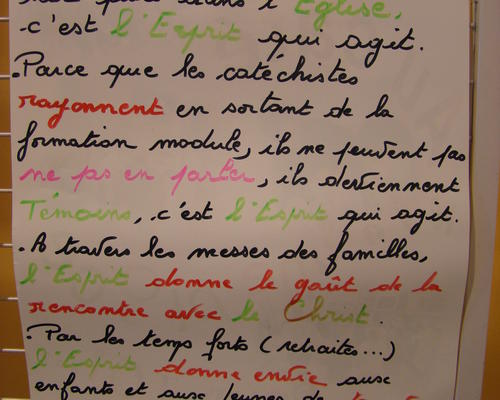 dans l'Église,
c'est l'Esprit qui agit.
.Parce que les catéchistes
rayonnent en sortant de la
formation module, ils ne peuvent pas
ne pas en parler, ils deviennent
Témoins, c'est l'Esprit qui agit.
. A travers les messes des familles,
l'Esprit donne le goût de la
rencontre avec le Christ.
. Par les temps forts (retraites...)
l'Esprit donne envie aux
enfants et aux jeunes de